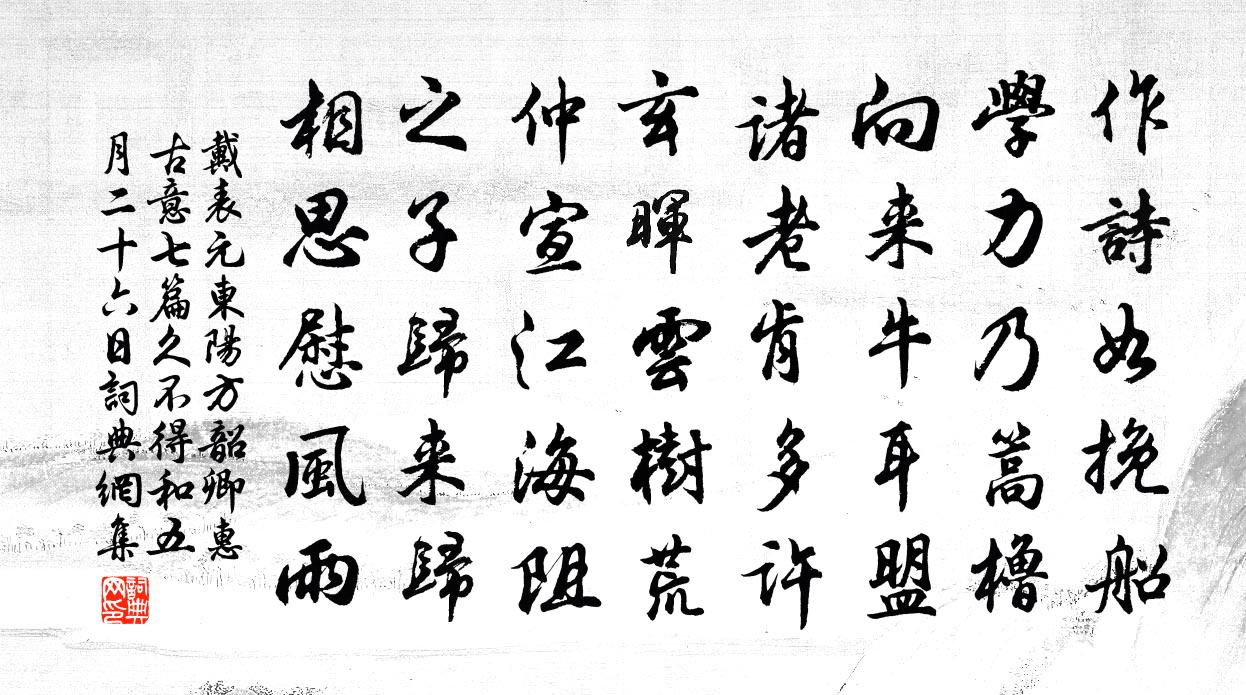 作詩如挽船
學力乃篙櫓
向来牛耳盟
诸老肯多许
玄暉雲樹荒
仲宣江海阻
之子歸来歸
相思慰風雨
戴表元東陽方韶卿惠
古意七篇久不得和五
月二十六日詞典網集
詞典網印